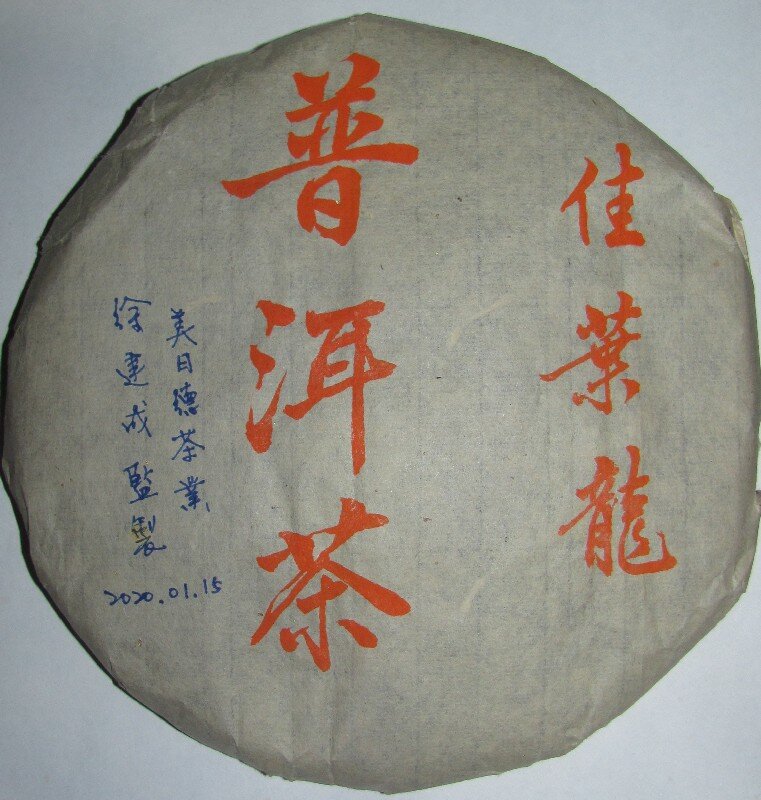 佳葉龍
普洱茶
美日德茶業
徐建成監製
2020.01.15